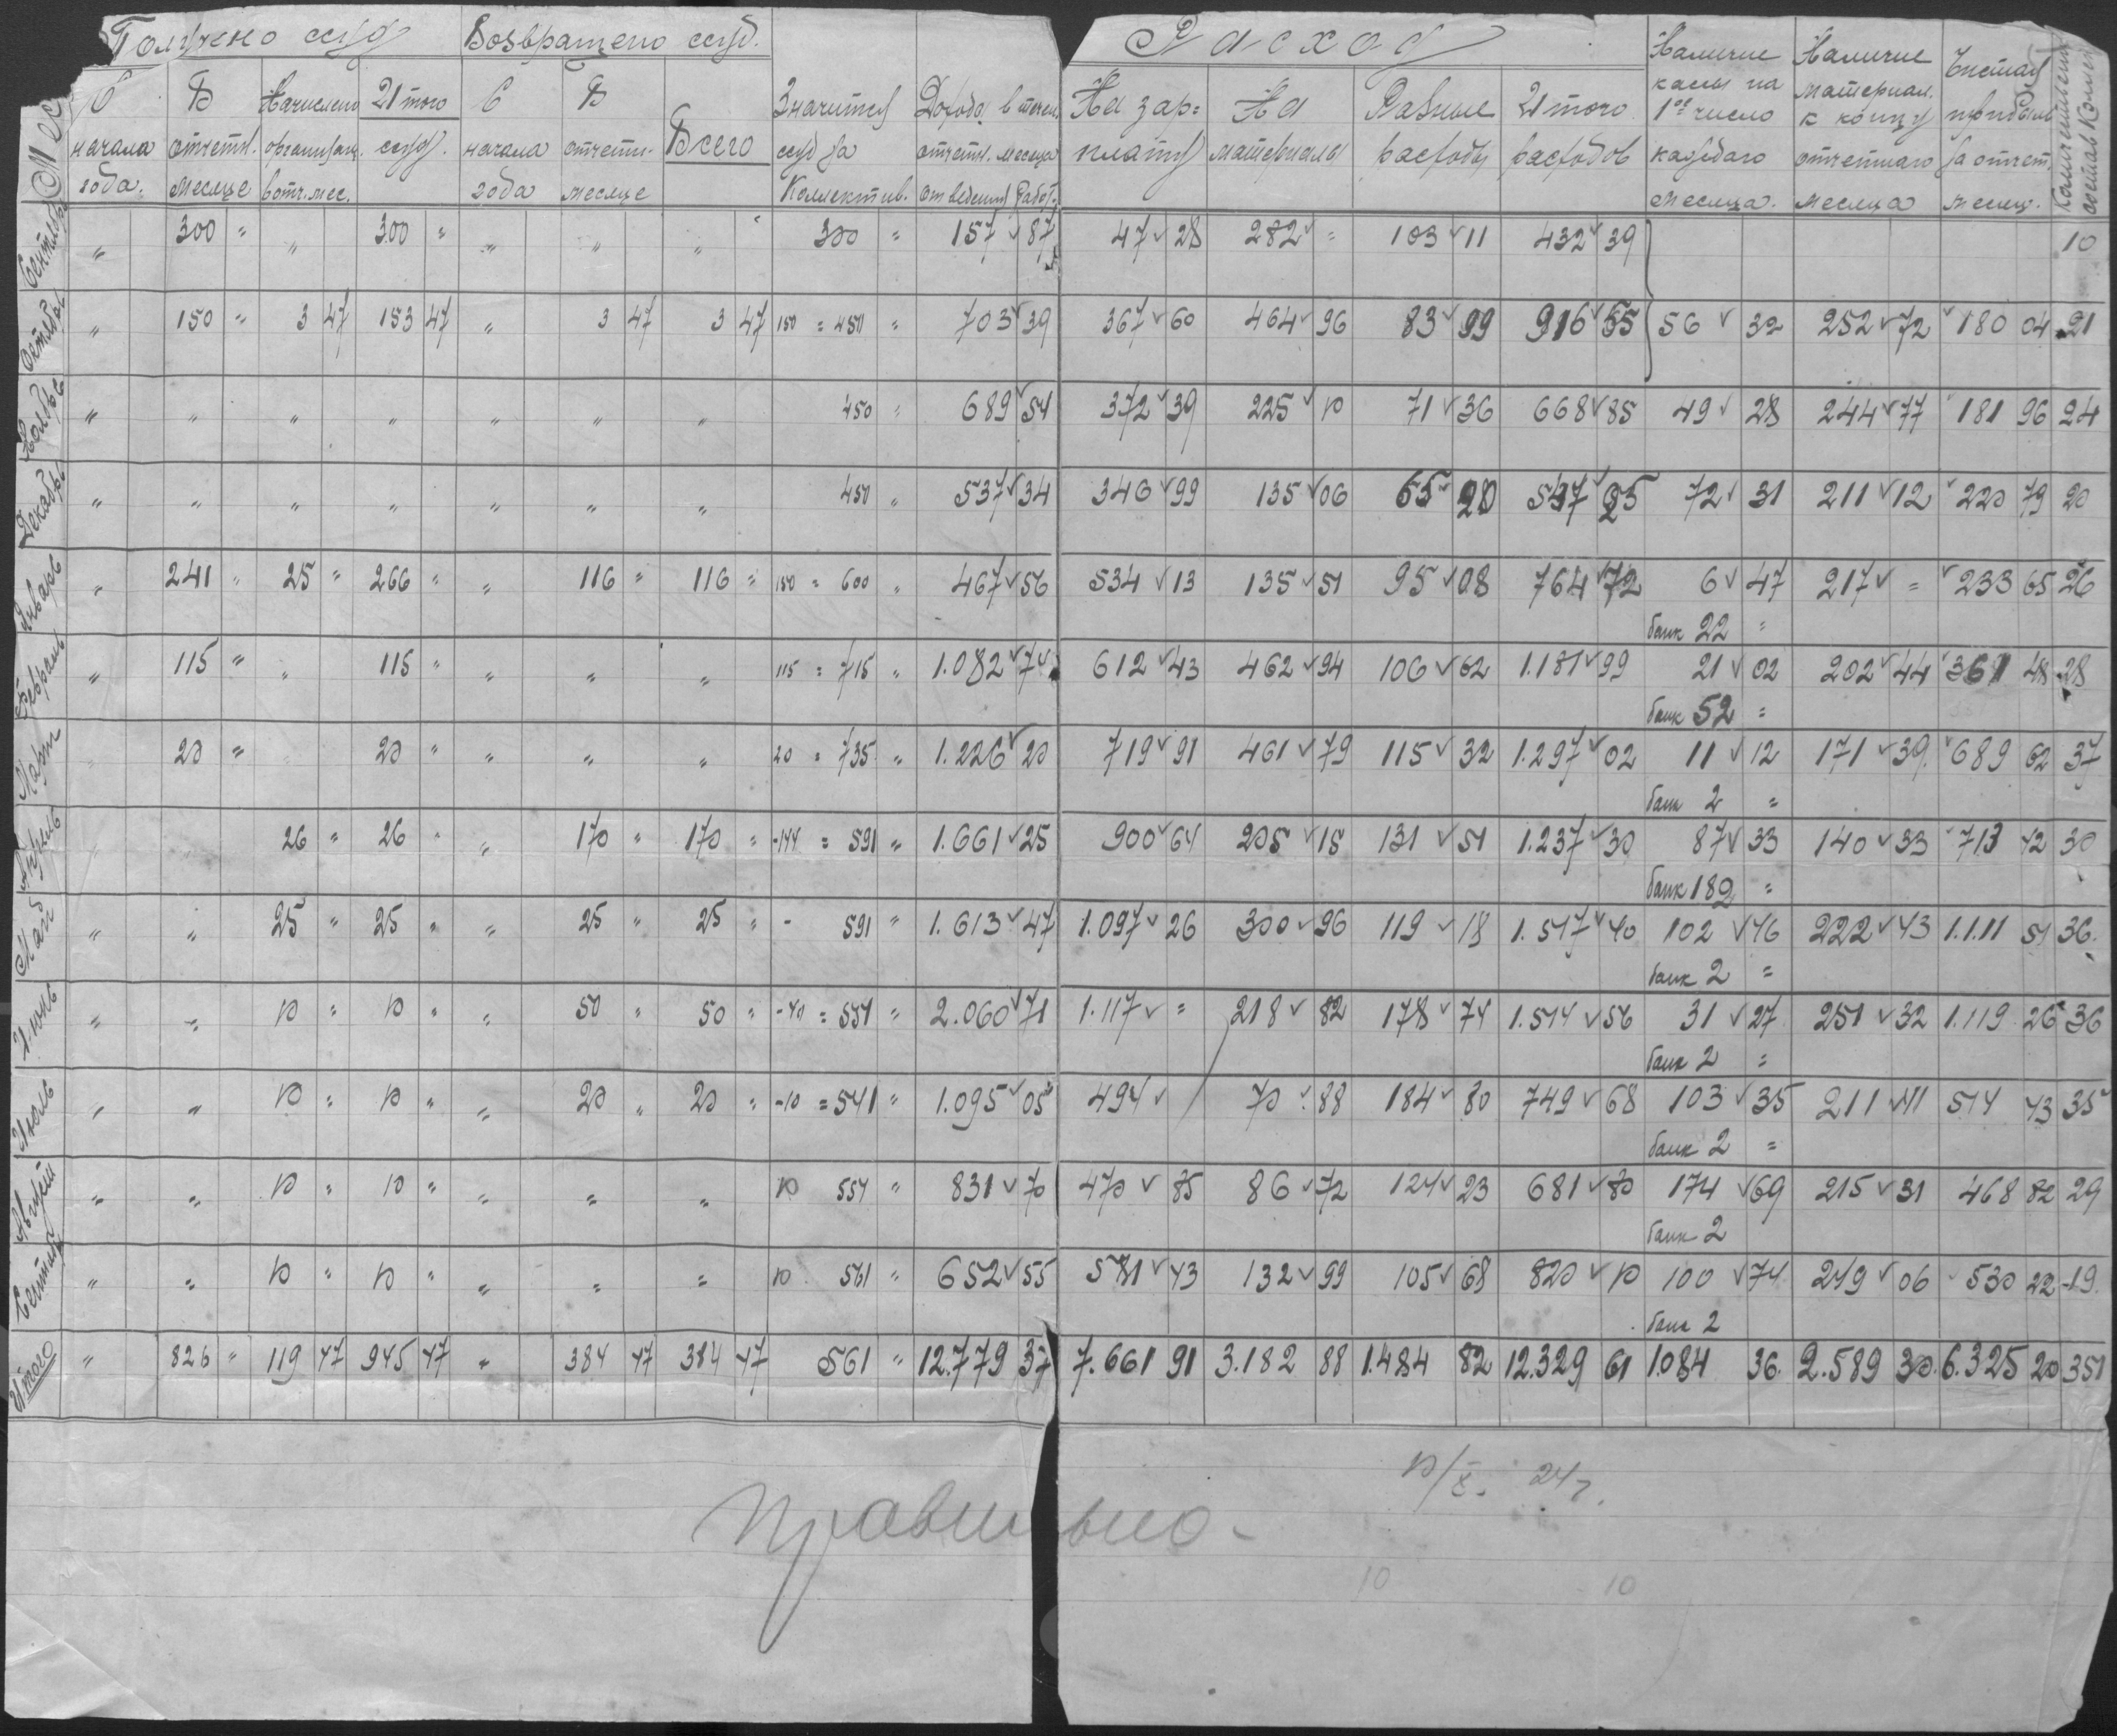 Получено ссуд Возвращено ссуд. Расход
Мес
С начала года. В отчетн. месяце Начислено организац. в отч. мес. Итого ссуд. С начала года В отчетн. месяце Всего Значится ссуд за Коллектив. Доходо в течен. отчетн. месяца от ведения работ. На зарплату На материалы Разные расходы Итого расходов Наличие кассы на 1ое число каждаго месяца. Наличие материал. к концу отчетнаго месяца Чистая прибыль за отчет. месяц. Количествен. состав Коллек.
Сентябрь „ 300 „ „ 300 „ „ „ „ 300 „ 157 87 47 28 282 = 103 11 432 39 10
Октябрь „ 150 „ 3 47 153 47 „ 3 47 3 47 150 = 450 „ 703 39 367 60 464 96 83 99 916 55 56 32 252 72 180 04 21
Ноябрь „ „ „ „ „ „ „ 450 „ 689 54 372 39 225 10 71 36 668 85 49 28 244 77 181 96 24
Декабрь „ „ „ „ „ „ „ 450 „ 537 34 346 99 135 06 65 20 547 25 72 31 211 12 220 79 20
Январь „ 241 „ 25 „ 266 „ „ 116 „ 116 „ 150 = 600 „ 467 56 534 13 135 51 95 08 764 72 6 47 217 = 233 65 26
банк 22 =
Февраль „ 115 „ „ 115 „ „ „ „ 115 = 715 „ 1.082 74 612 43 462 94 106 62 1.181 99 21 02 202 44 361 48 28
банк 52 =
Март 20 „ 20 „ „ „ „ 20 = 735 „ 1.226 20 719 91 461 79 115 32 1.297 02 11 12 171 39 689 62 37
банк 2 =
Апрель 26 „ 26 „ „ 170 „ 170 „ -144 = 591 „ 1.661 25 900 64 205 15 131 51 1.237 30 87 33 140 33 713 42 30
банк 182 =
Май „ „ 25 „ 25 „ „ 25 „ 25 „ - 591 „ 1.613 47 1.097 26 300 96 119 18 1.517 40 102 46 222 43 1.111 51 36.
банк 2 =
Июнь „ „ 10 „ 10 „ „ 50 „ 50 „ -40 = 551 „ 2.060 71 1.117 = 218 82 178 74 1.514 56 31 27 251 32 1.119 26 36
банк 2 =
Июль „ „ 10 „ 10 „ „ 20 „ 20 „ -10 = 541 „ 1.095 05 494 / 70 88 184 80 749 68 103 35 211 11 514 43 35
банк 2 =
Август „ „ 10 „ 10 „ „ „ „ 10 551 „ 831 70 470 85 86 72 124 23 681 80 174 69 215 31 468 82 29
банк 2
Сентяб „ „ 10 „ 10 „ „ „ „ 10 561 „ 652 55 581 43 132 99 105 68 820 10 100 74 249 06 530 22 19.
банк 2
Итого „ 826 „ 119 47 945 47 „ 384 47 384 47 561 „ 12.779 37 7.661 91 3.182 88 1.484 82 12.329 61 1084 36 2.589 30 6.325 20 351
10/X. 24 г.
Правильно-
10 10